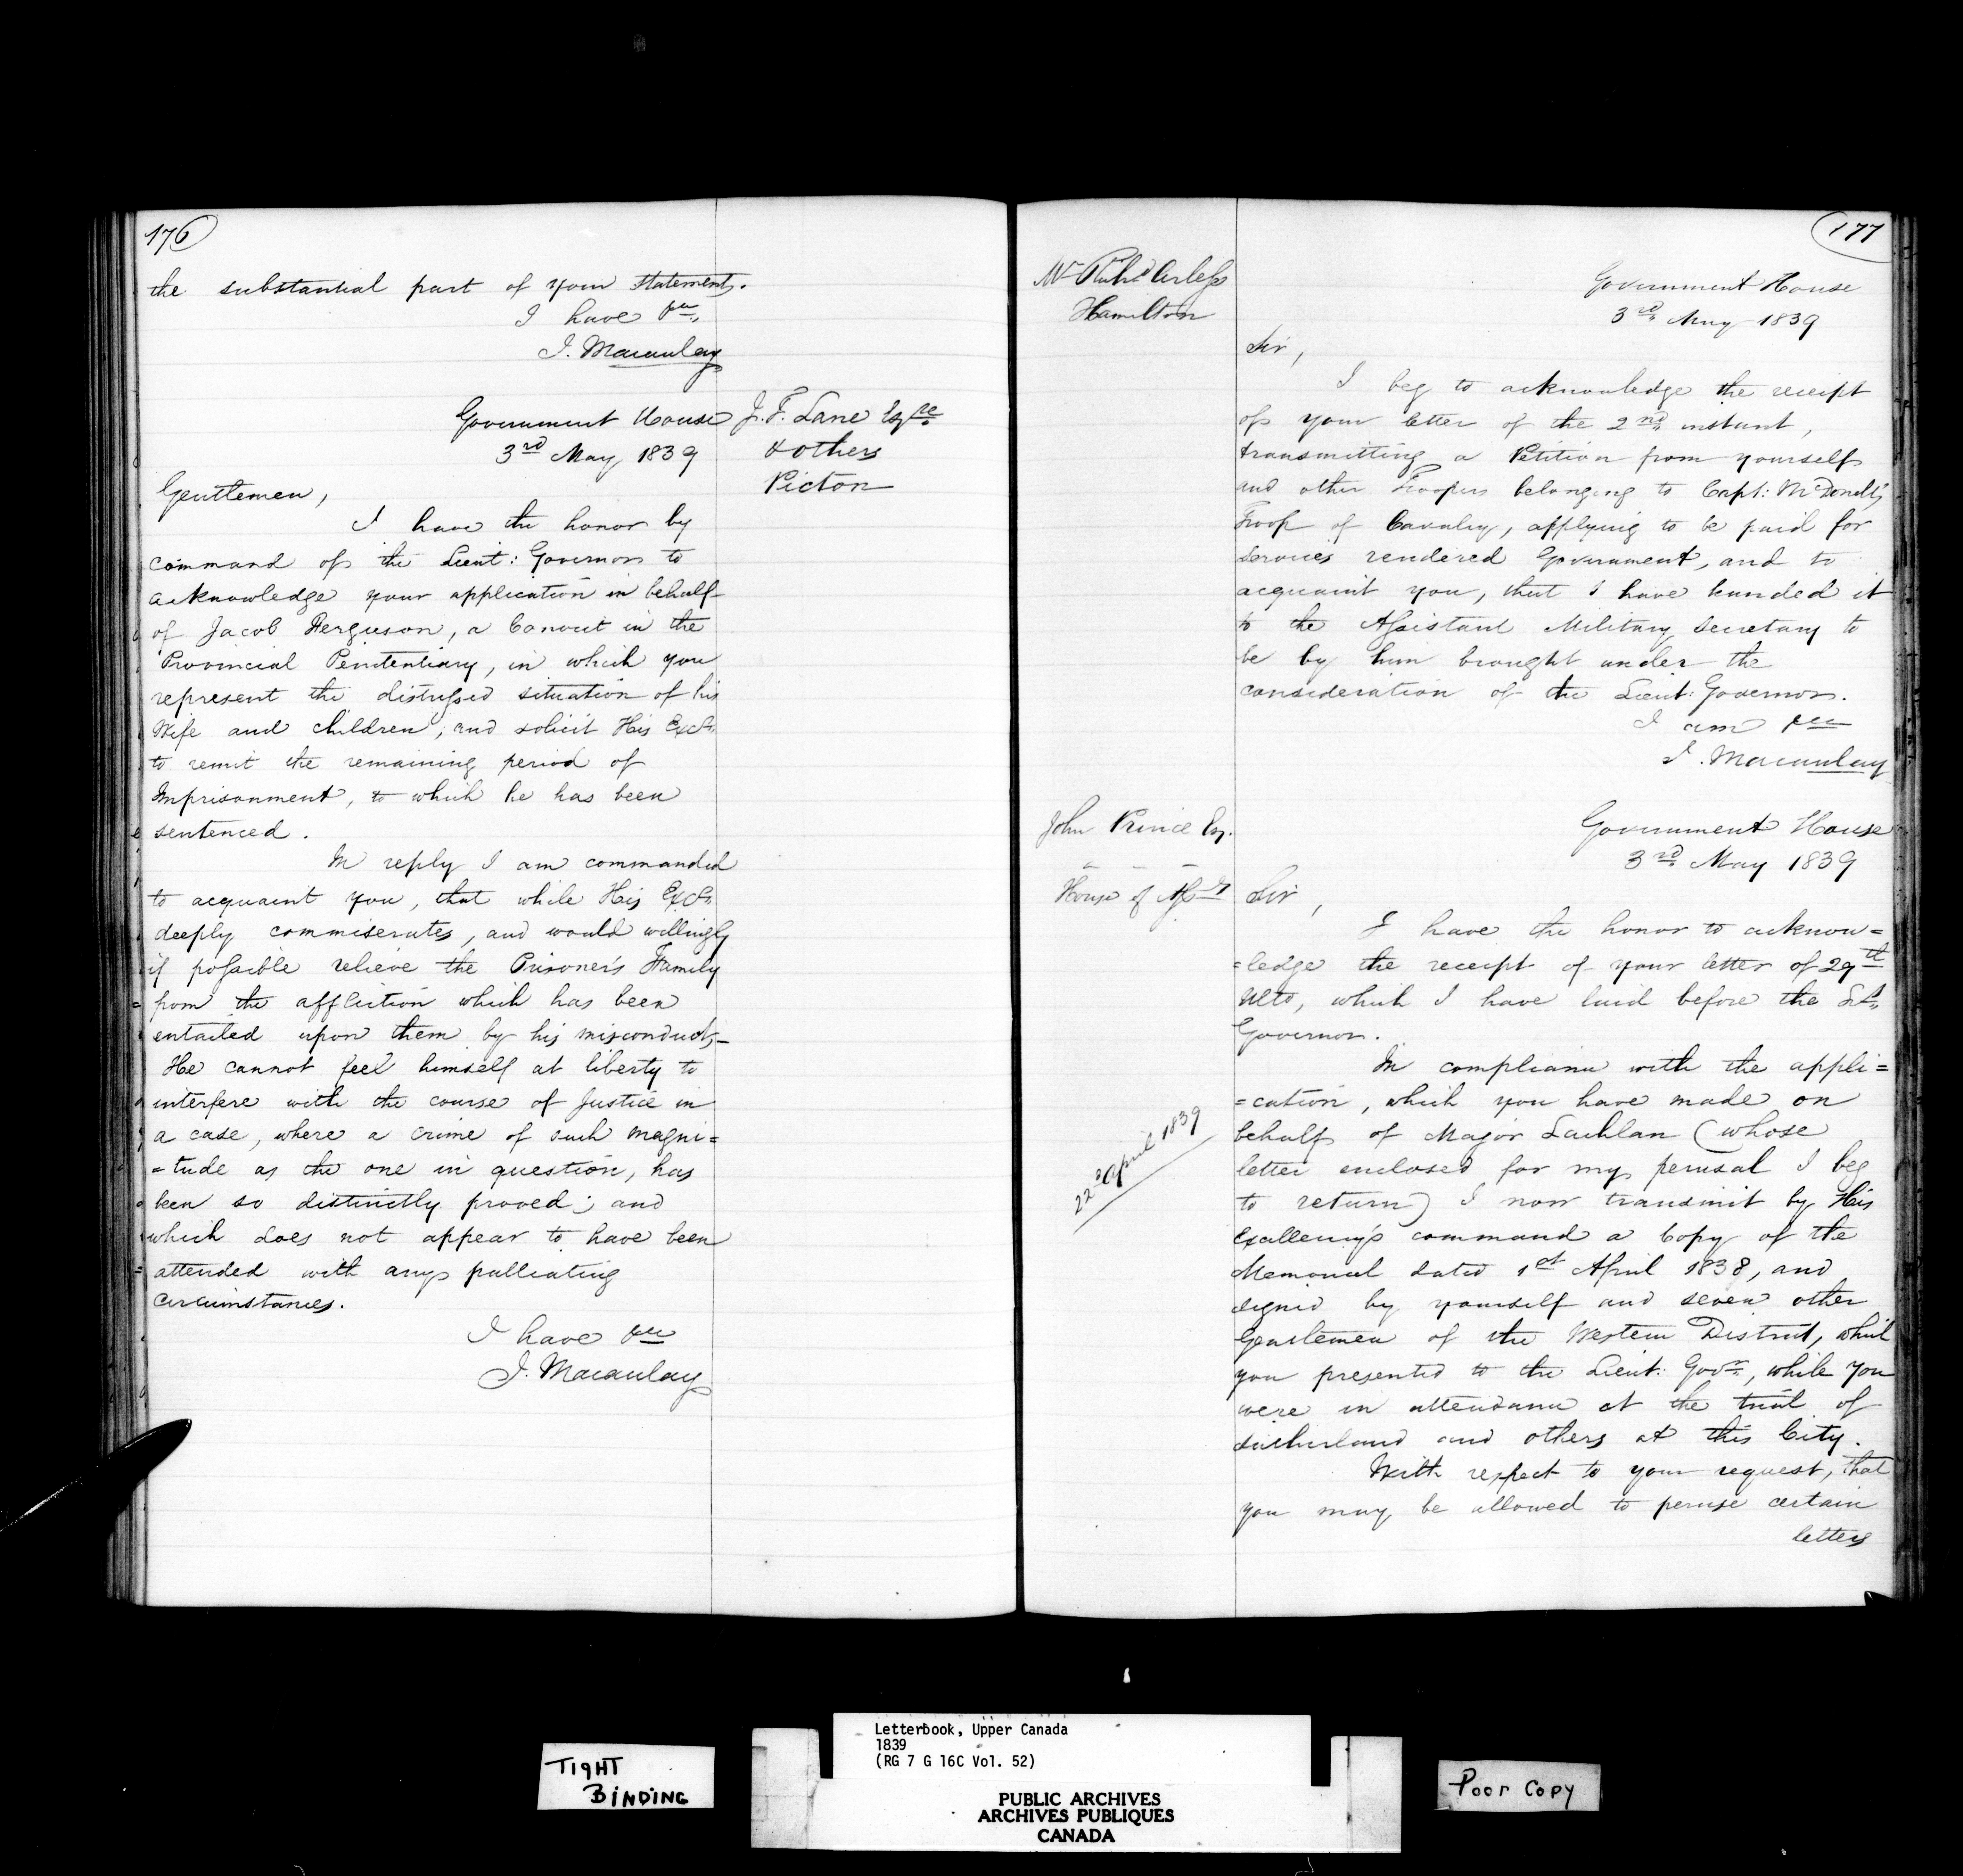 176
the substantial part of your statements.
I have &c.
J. Macaulay
J. F. Lane Esqre
& others
Picton
Government House
3rd May 1839
Gentlemen,
I have the honor by
command of the Lieut: Governor to
acknowledge your application in behalf
of Jacob Ferguson, a Convict in the
Provincial Penitentiary, in which you
represent the distressed situation of his
Wife and children; and solicit His Excy.
to remit the remaining period of
Imprisonment, to which he has been
sentenced.
In reply I am commanded
to acquaint you, that while His Excy.
deeply commiserates, and would willingly
if possible relieve the Prisoner's Family
from the affliction which has been
entailed upon them by his misconduct,—
He cannot feel himself at liberty to
interfere with the course of Justice in
a case, where a crime of such magni=
=tude as the one in question, has
been so distinctly proved; and
which does not appear to have been
attended with any palliating
circumstances.
I have &c
J. Macaulay
177
Mr Richd
Hamilton
Government House
3rd May 1839
Sir,
I beg to acknowledge the receipt
of your letter of the 2nd instant,
transmitting a Petition from yourself
and other Troopers belonging to Capt: McDonell's
Troop of Cavalry, applying to be paid for
services rendered Government, and to
acquaint you, that I have handed it
to the Assistant Military Secretary to
be by him brought under the
consideration of the Lieut: Governor.
I am &c
J. Macaulay
John Prince Esq.
House of Assy
Government House
3rd May 1839
Sir,
I have the honor to acknow=
=ledge the receipt of your letter of 29th
Ulto, which I have laid before the Lt.
Governor.
In compliance with the appli=
=cation, which you have made on
behalf of Major Lachlan (whose
22d April 1839
letter enclosed for my perusal I beg
to return) I now transmit by His
Excellency's command a Copy of the
Memorial dated 1st April 1838, and
signed by yourself and seven other
Gentlemen of the Western District, which
you presented to the Lieut: Govr., while you
were in attendance at the trial of
Sutherland and others at this City.
With respect to your request, that
you may be allowed to peruse certain
letters
TIGHT
BINDING
Letterbook, Upper Canada
1839
(RG 7 G 16C Vol. 52)
PUBLIC ARCHIVES
ARCHIVES PUBLIQUES
CANADA
Poor Copy